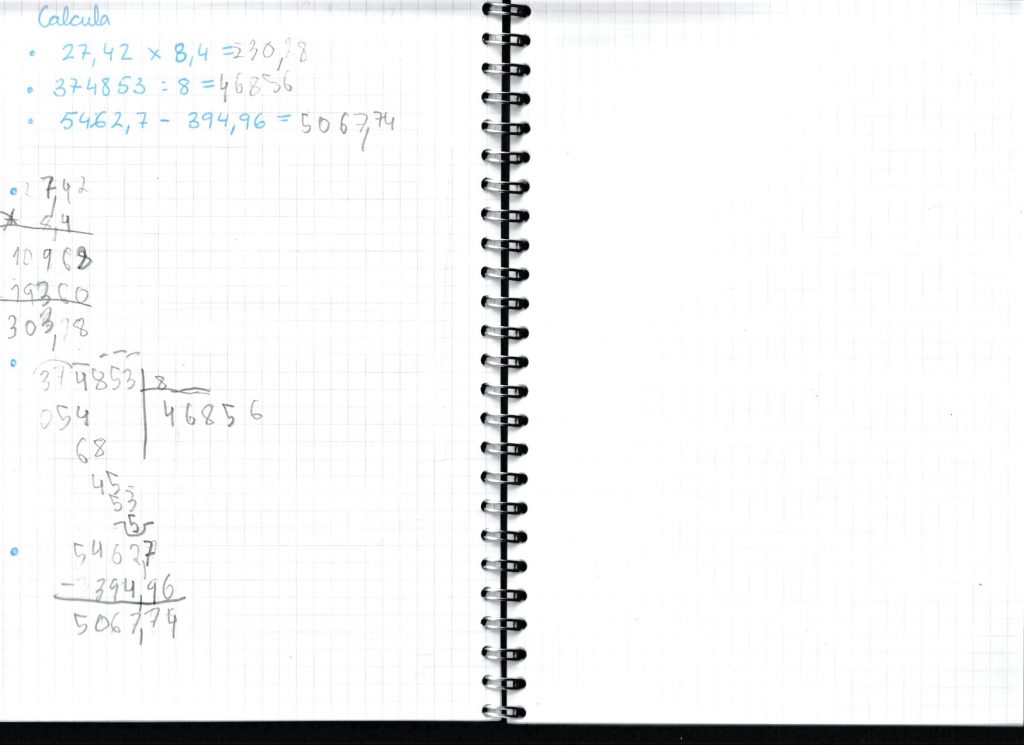 Calcula
• 27,42 x 8,4 = 230,28
• 374853 : 8 = 46856
• 5462,7 - 394,96 = 5067,74
• 27,42
x 8,4
10968
19360
303,28
• 374853 8
054 46856
68
45
53
5
• 5462,7
- 394,96
5067,74